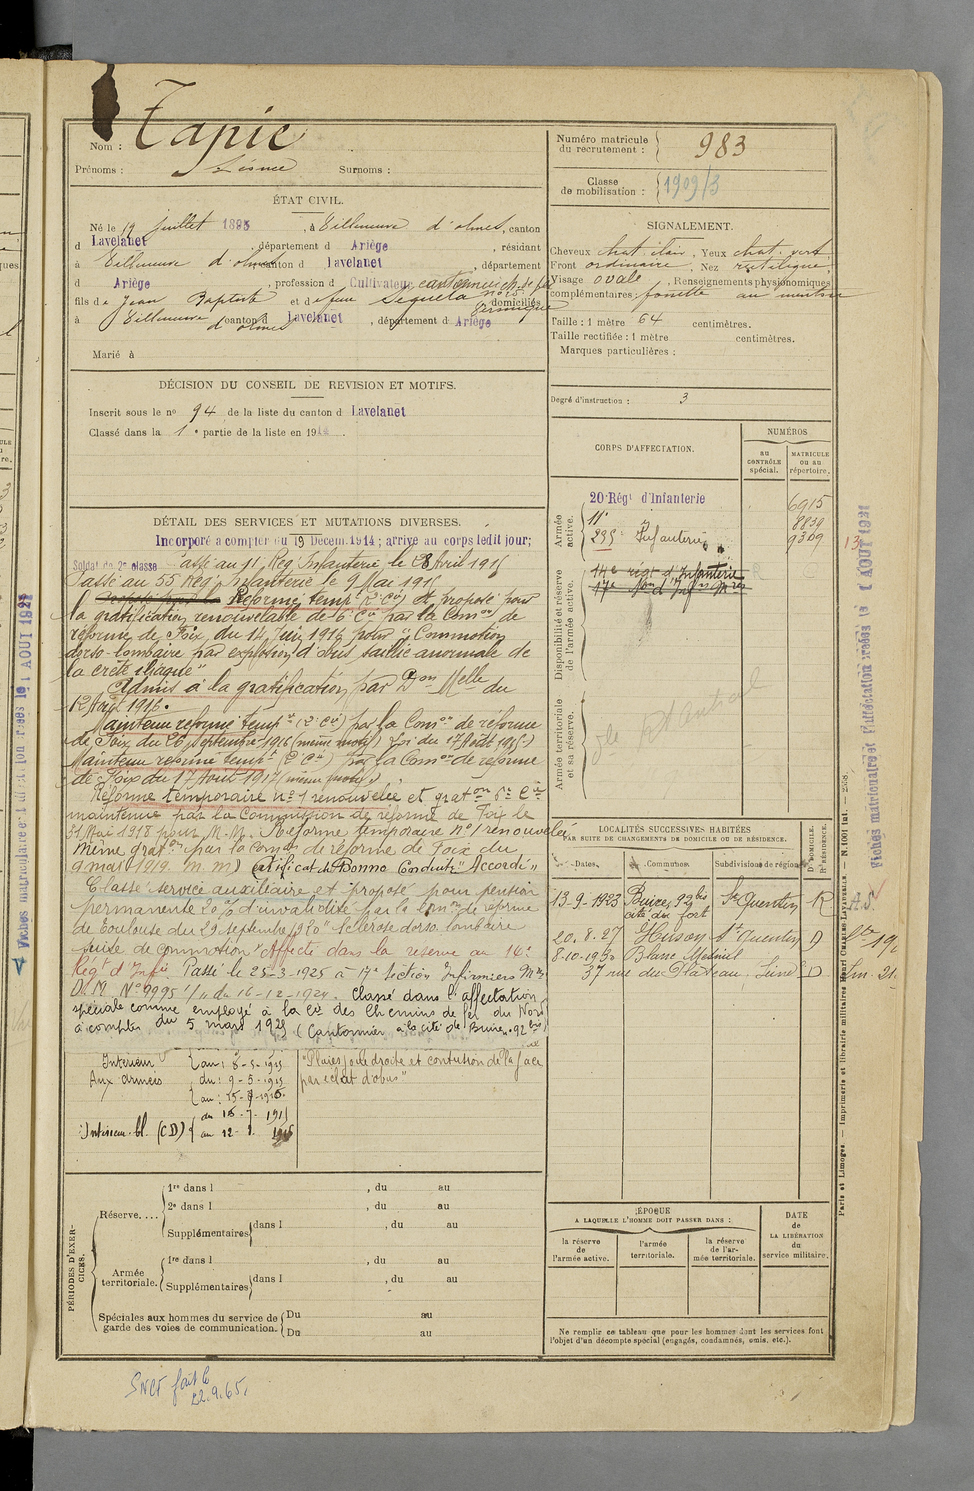 Nom : Tapie
Prénoms : Surnoms :
ÉTAT CIVIL.
Né le 19 Juillet 1895, à Villeneuve d'olmes, canton
d Lavelanet, département d Ariège, résidant
à Villeneuve d'olmes canton d Lavelanet, département
d Ariège, profession d Cultivateur cantonnier ch. de fer
fils de Jean Baptiste et de feue Seguela domiciliés
à Villeneuve d'olmes canton d Lavelanet, département d Ariège
Marié à
DÉCISION DU CONSEIL DE REVISION ET MOTIFS.
Inscrit sous le no 94 de la liste du canton d Lavelanet
Classé dans la 1e partie de la liste en 191
DÉTAIL DES SERVICES ET MUTATIONS DIVERSES.
Incorporé a compter du 19 Décem. 1914; arrivé au corps ledit jour;
Soldat de 2e classe Passé au 11e Rég. Infanterie le 28 Avril 1915
Passé au 55 Rég. Infanterie le 9 Mai 1915
Réforme tempre (2e Cie) et proposé pour
la gratification renouvelable de 6e Cie par la Comon de
réforme de Foix du 14 Juin 1916 pour "Commotion
dorso-lombaire par explosion d'obus saillie anormale de
la crête iliaque"
Admis à la gratification par Don Melle du
12 Août 1916.
Maintenu réformé tempre (2e Cie) par la Comon de réforme
de Foix du 26 Septembre 1916 (même motif)
Maintenu réformé tempre (2e Cie) par la Comon de réforme
de Foix du 17 Août 1917 (même motif)
Réforme temporaire no 1 renouvelée et graton 6e Cie
maintenue par la Commission de réforme de Foix le
31 Mai 1918 pour M.M. Réforme temporaire no 1 renouvelée
même graton par la Comon de réforme de Foix du
9 mai 1919 (m m) Certificat de Bonne Conduite "Accordé"
Classé service auxiliaire et proposé pour pension
permanente 20% d'invalidité par la Comon de réforme
de Toulouse du 29 septembre 1920 "Sclérose dorso lombaire
suite de commotion" Affecté dans la réserve au 14e
Régt d'Infie Passé le 25-3-1925 à 17e Section Infirmiers Mres
D.M. No 9995 1/11 du 16-12-1924. Classé dans l'affectation
spéciale comme employé à la Cie des Chemins de fer du Nord
à compter du 5 mars 1925 (Cantonnier à la cité de Buire. 92 bis)
Intérieur au : 8-5-1915
Aux armées du : 9-5-1915
au : 15-7-1915
Intérieur bl. (CD) du 16-7-1915
au 12-8-1916
"Plaies joue droite et contusion de la face
par éclat d'obus"
PÉRIODES D'EXERCICES.
Réserve....
1re dans l , du au
2e dans l , du au
Supplémentaires dans l , du au
Armée territoriale.
1re dans l , du au
Supplémentaires dans l , du au
Spéciales aux hommes du service de garde des voies de communication.
Du au
Du au
Numéro matricule du recrutement : 983
Classe de mobilisation : 1909/3
SIGNALEMENT.
Cheveux chat. clair, Yeux chat. vert
Front ordinaire, Nez rectiligne,
Visage ovale, Renseignements physionomiques
complémentaires : fossette au menton
Taille : 1 mètre 64 centimètres.
Taille rectifiée : 1 mètre centimètres.
Marques particulières :
Degré d'instruction : 3
CORPS D'AFFECTATION.
NUMÉROS
au CONTRÔLE spécial.
MATRICULE ou au répertoire.
Armée active.
20e Régt d'Infanterie 6915
11e 8839
Infanterie 9309
Disponibilité et réserve de l'armée active.
14e régt d'Infanterie
17e Son d'Infirs Mres
Armée territoriale et sa réserve.
LOCALITÉS SUCCESSIVES HABITÉES
PAR SUITE DE CHANGEMENTS DE DOMICILE OU DE RÉSIDENCE.
Dates. Communes. Subdivisions de région. D. DOMICILE. R. RÉSIDENCE.
13-9-1923 Buire, 92 bis cité du fort St Quentin R
20.8.27 Hirson St Quentin D
8-10-1930 Blanc Mesnil
37 rue du Plateau. Seine D
ÉPOQUE
A LAQUELLE L'HOMME DOIT PASSER DANS :
la réserve de l'armée active.
l'armée territoriale.
la réserve de l'armée territoriale.
DATE de LA LIBÉRATION du service militaire.
Ne remplir ce tableau que pour les hommes dont les services font
l'objet d'un décompte spécial (engagés, condamnés, omis, etc.).
Paris et Limoges. — Imprimerie et librairie militaires Henri CHARLES-LAVAUZELLE. — N. 1001 (m).
SNCF fait le
22.9.65.